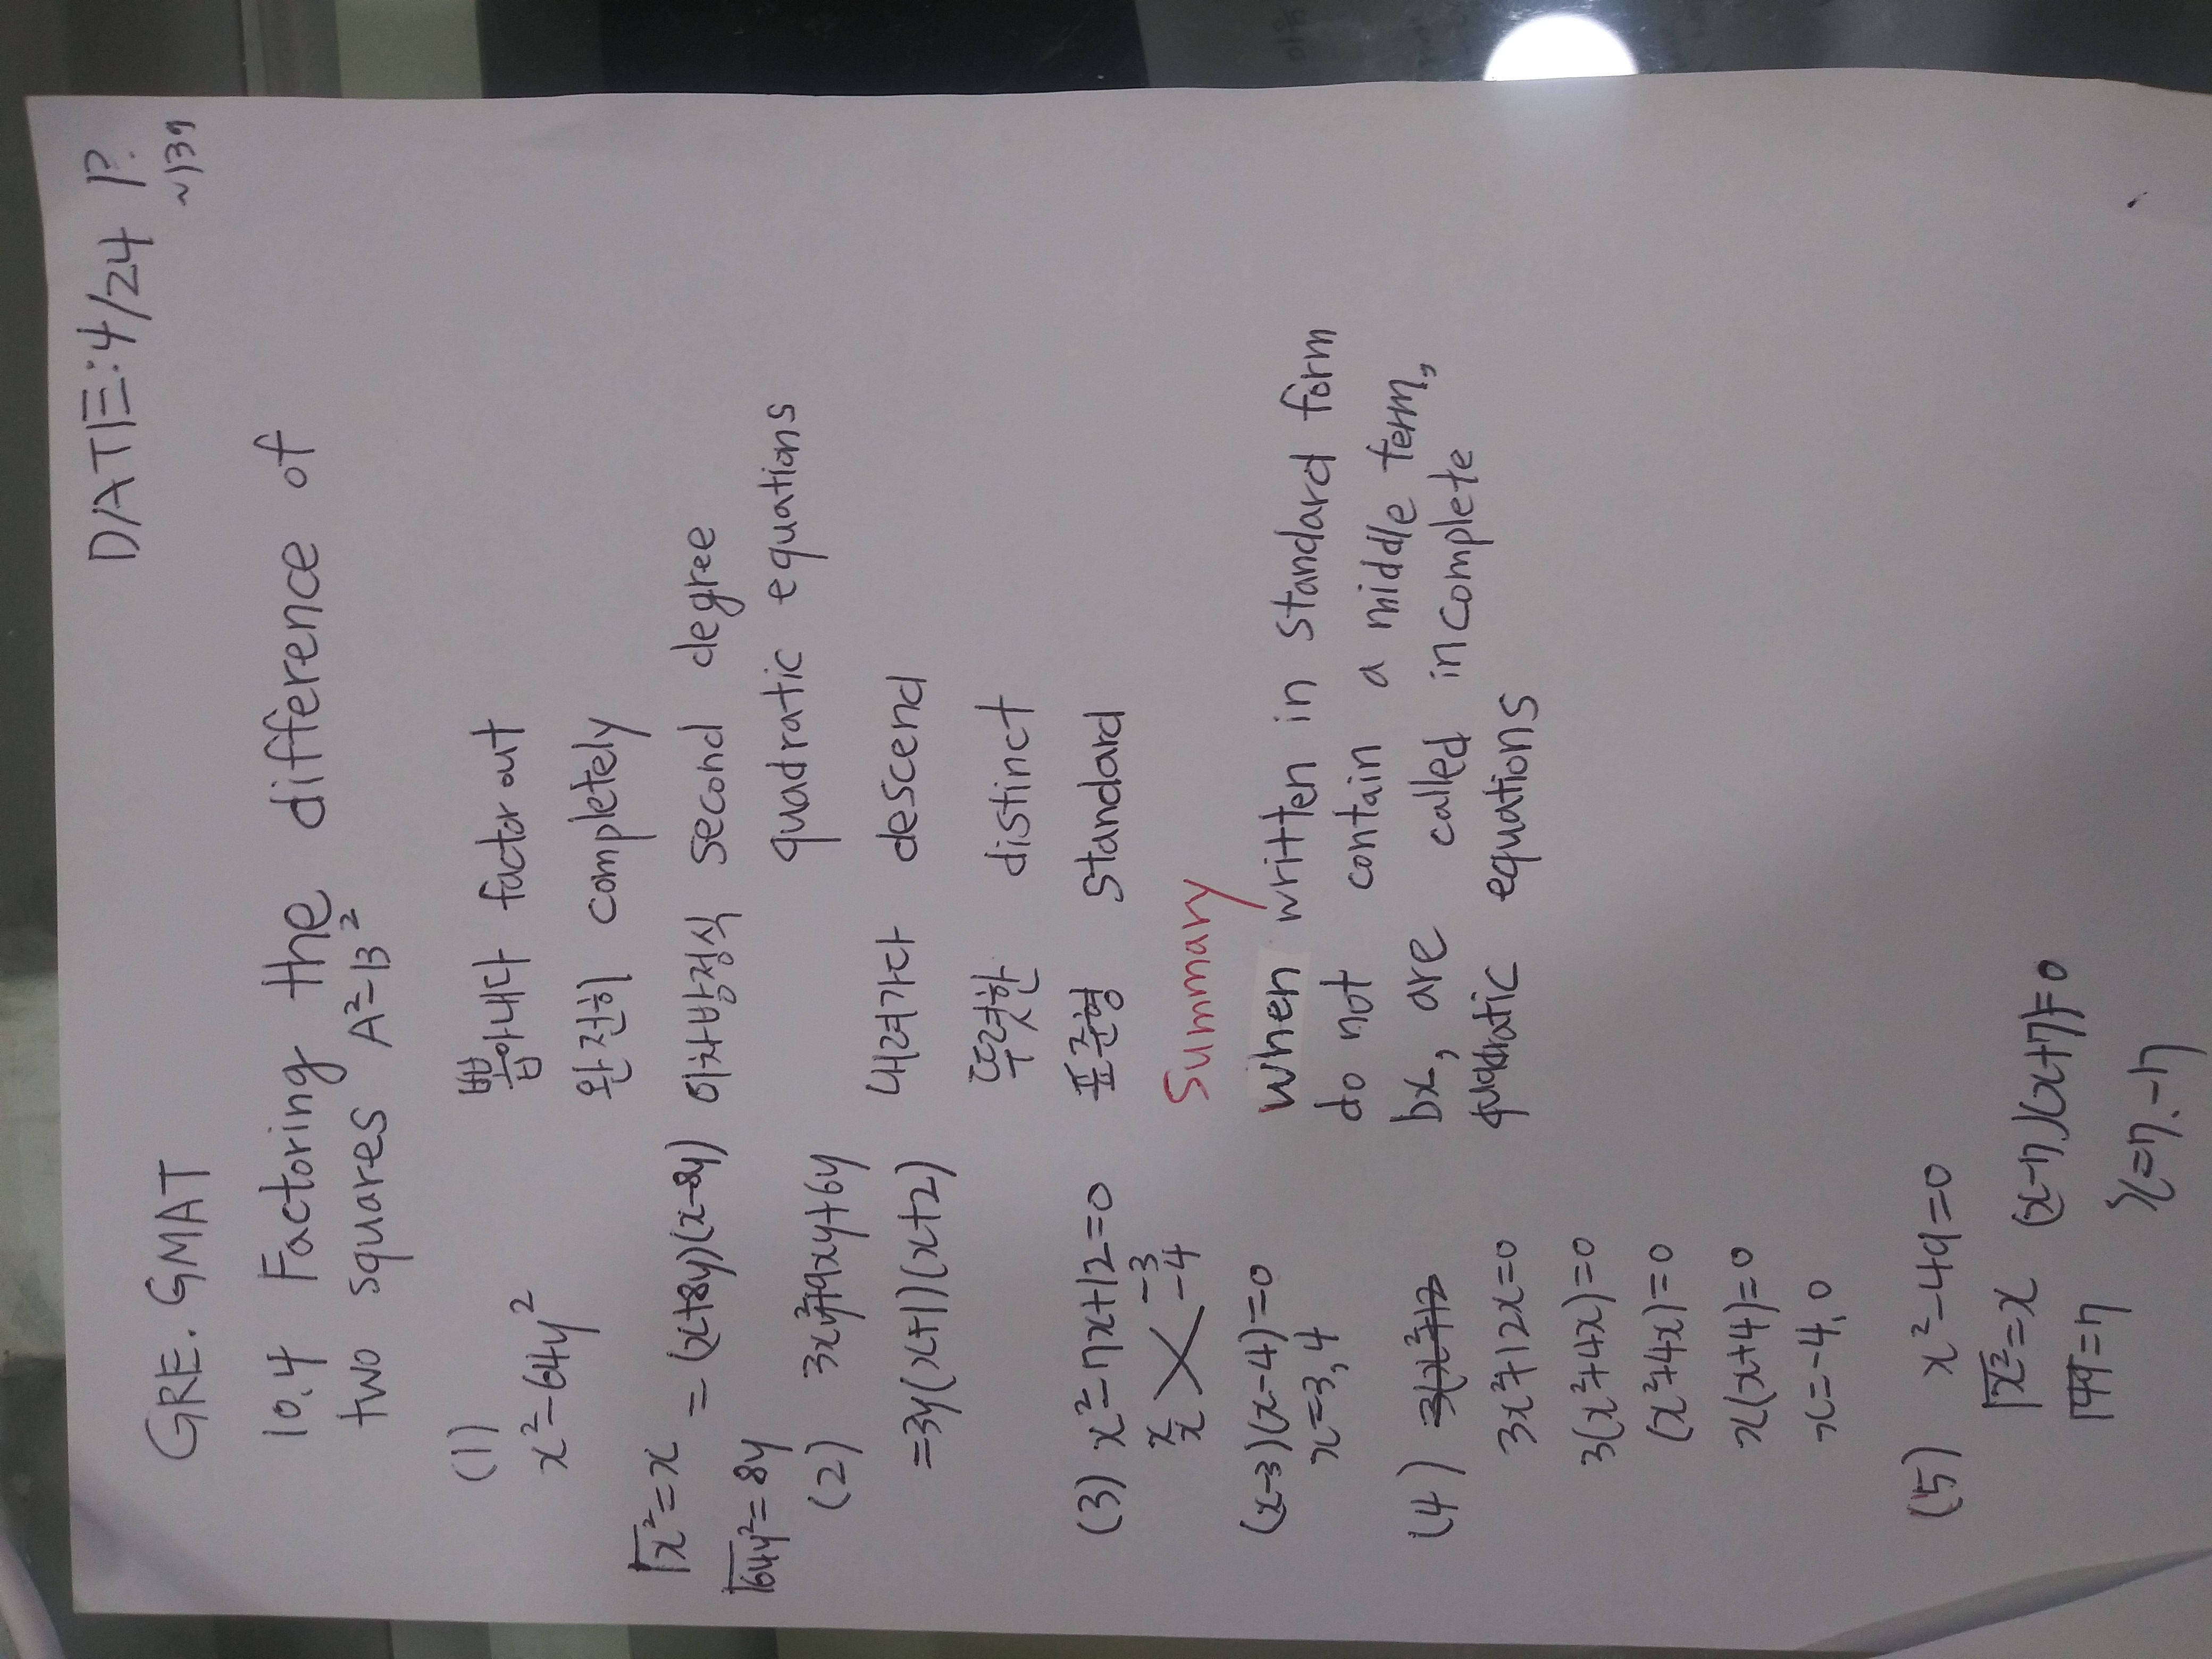 DATE: 4/24 P.
~139
GRE. GMAT
10.4 Factoring the difference of
two squares A²-B²
(1)
x²-64y²
√x²=x
=(x+8y)(x-8y)
√64y²=8y
(2) 3x²y+9xy+6y
=3y(x+1)(x+2)
(3) x²-7x+12=0
x -3
x -4
(x-3)(x-4)=0
x=3,4
(4)
3x²+12x=0
3(x²+4x)=0
(x²+4x)=0
x(x+4)=0
x=-4,0
(5) x²-49=0
√x²=x (x-7)(x+7)=0
√49=7
x=7,-7
뽑아내다 factor out
완전히 completely
이차방정식 second degree
quadratic equations
내려가다 descend
뚜렷한 distinct
표준형 standard
Summary
When written in standard form
do not contain a middle term,
bx, are called incomplete
quadratic equations